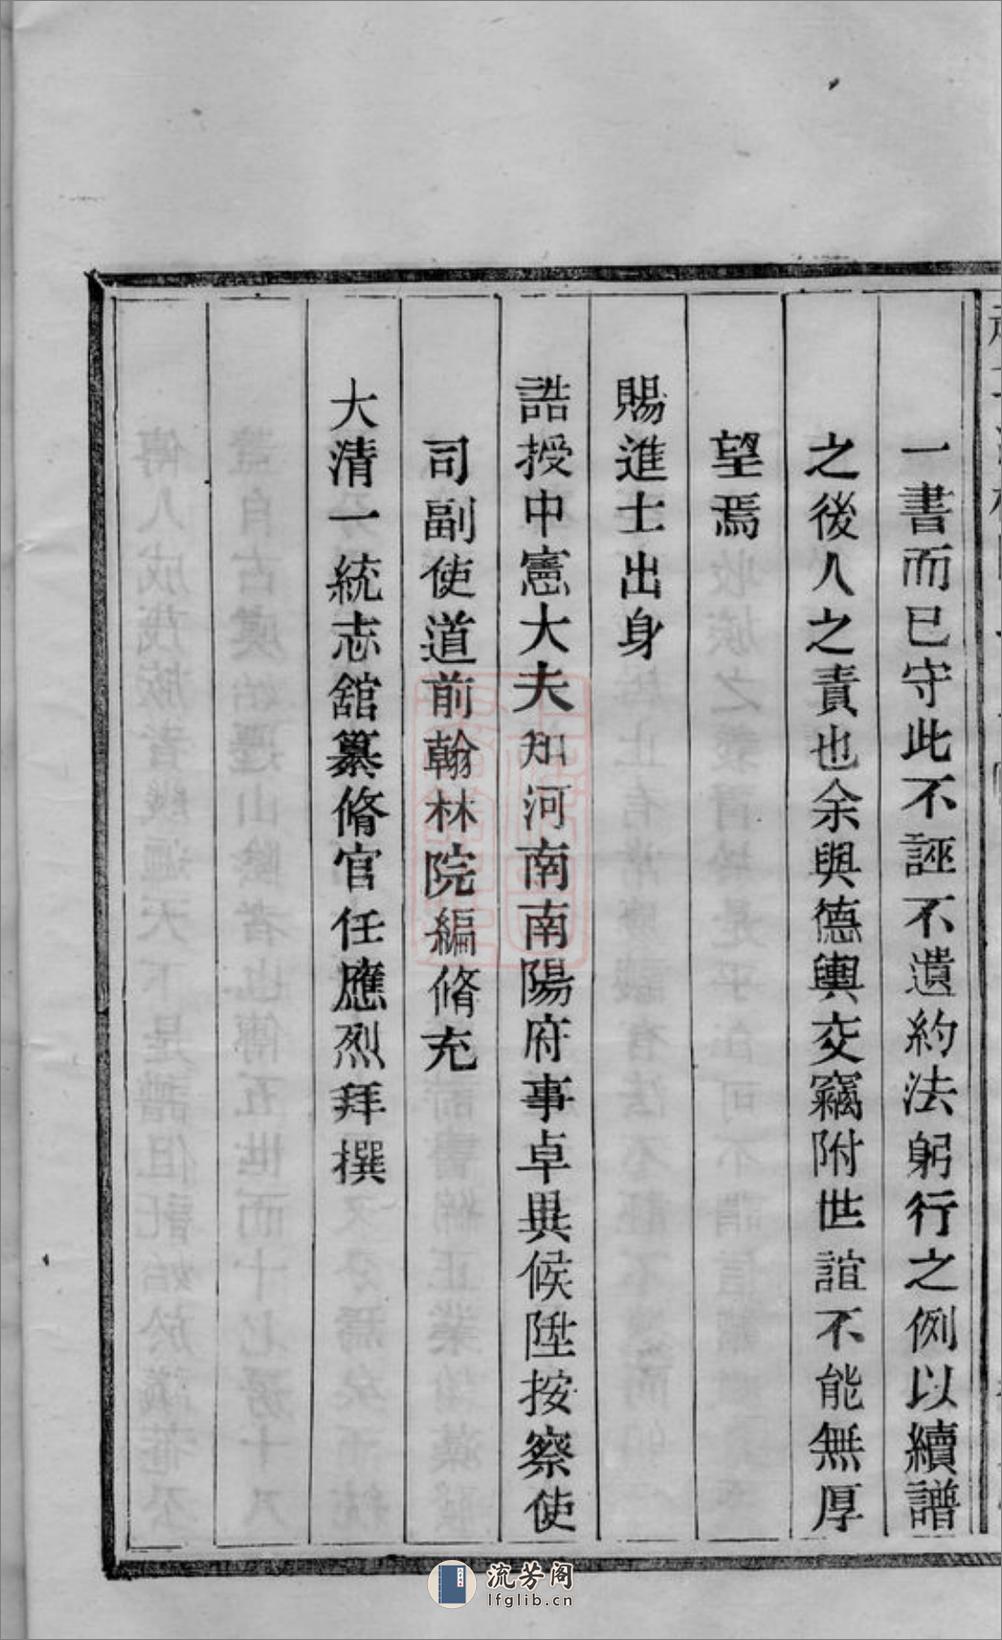 一書而已守此不誣不遺約法躬行之例以續譜
之後人之責也余與德輿交竊附世誼不能無厚
望焉
賜進士出身
誥授中憲大夫知河南南陽府事卓異候陞按察使
司副使道前翰林院編脩充
大清一統志舘纂脩官任應烈拜撰
流芳阁
lfglib.cn